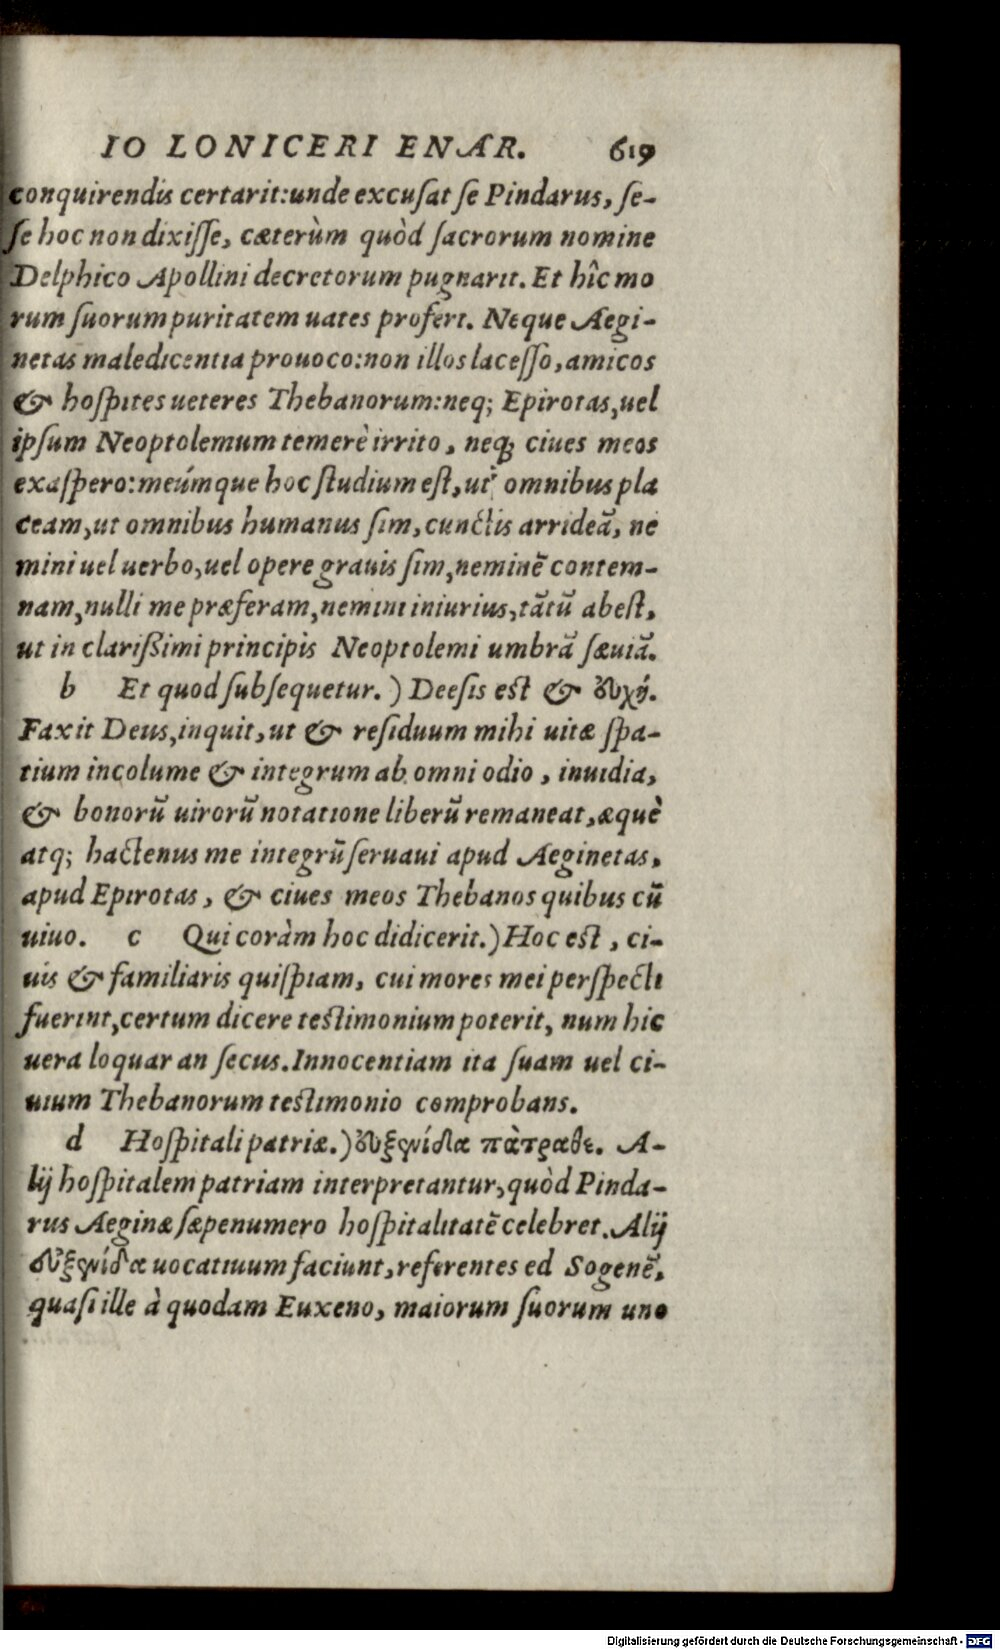 IO LONICERI ENAR. 619
conquirendis certarit:unde excuſat ſe Pindarus, ſe-
ſe hoc non dixiſſe, cæterùm quòd ſacrorum nomine
Delphico Apollini decretorum pugnarit. Et hîc mo
rum ſuorum puritatem uates profert. Neque Aegi-
netas maledicentia prouoco:non illos laceſſo, amicos
& hoſpites ueteres Thebanorum:neq; Epirotas, uel
ipſum Neoptolemum temerè irrito, neq; ciues meos
exaſpero:meúmque hoc ſtudium eſt, ut omnibus pla
ceam, ut omnibus humanus ſim, cunctis arrideã, ne
mini uel uerbo, uel opere grauis ſim, neminẽ contem-
nam, nulli me præferam, nemini iniurius, tãtũ abeſt,
ut in clariſsimi principis Neoptolemi umbrã ſæuiã.
b Et quod ſubſequetur.) Deeſis est & ἐυχή.
Faxit Deus, inquit, ut & reſiduum mihi uitæ ſpa-
tium incolume & integrum ab omni odio, inuidia,
& bonorũ uirorũ notatione liberũ remaneat, æquè
atq; hactenus me integrũ ſeruaui apud Aeginetas,
apud Epirotas, & ciues meos Thebanos quibus cũ
uiuo. c Qui coràm hoc didicerit.) Hoc est, ci-
uis & familiaris quiſpiam, cui mores mei perſpecti
fuerint, certum dicere testimonium poterit, num hic
uera loquar an ſecus. Innocentiam ita ſuam uel ci-
uium Thebanorum testimonio comprobans.
d Hoſpitali patriæ.) ἐυξενίδα πὰτραθε. A-
lij hoſpitalem patriam interpretantur, quòd Pinda-
rus Aeginæ ſæpenumero hoſpitalitatẽ celebret. Alij
ἐυξενίδα uocatiuum faciunt, referentes ed Sogenẽ,
quaſi ille à quodam Euxeno, maiorum ſuorum uno
Digitalisierung gefördert durch die Deutsche Forschungsgemeinschaft - DFG